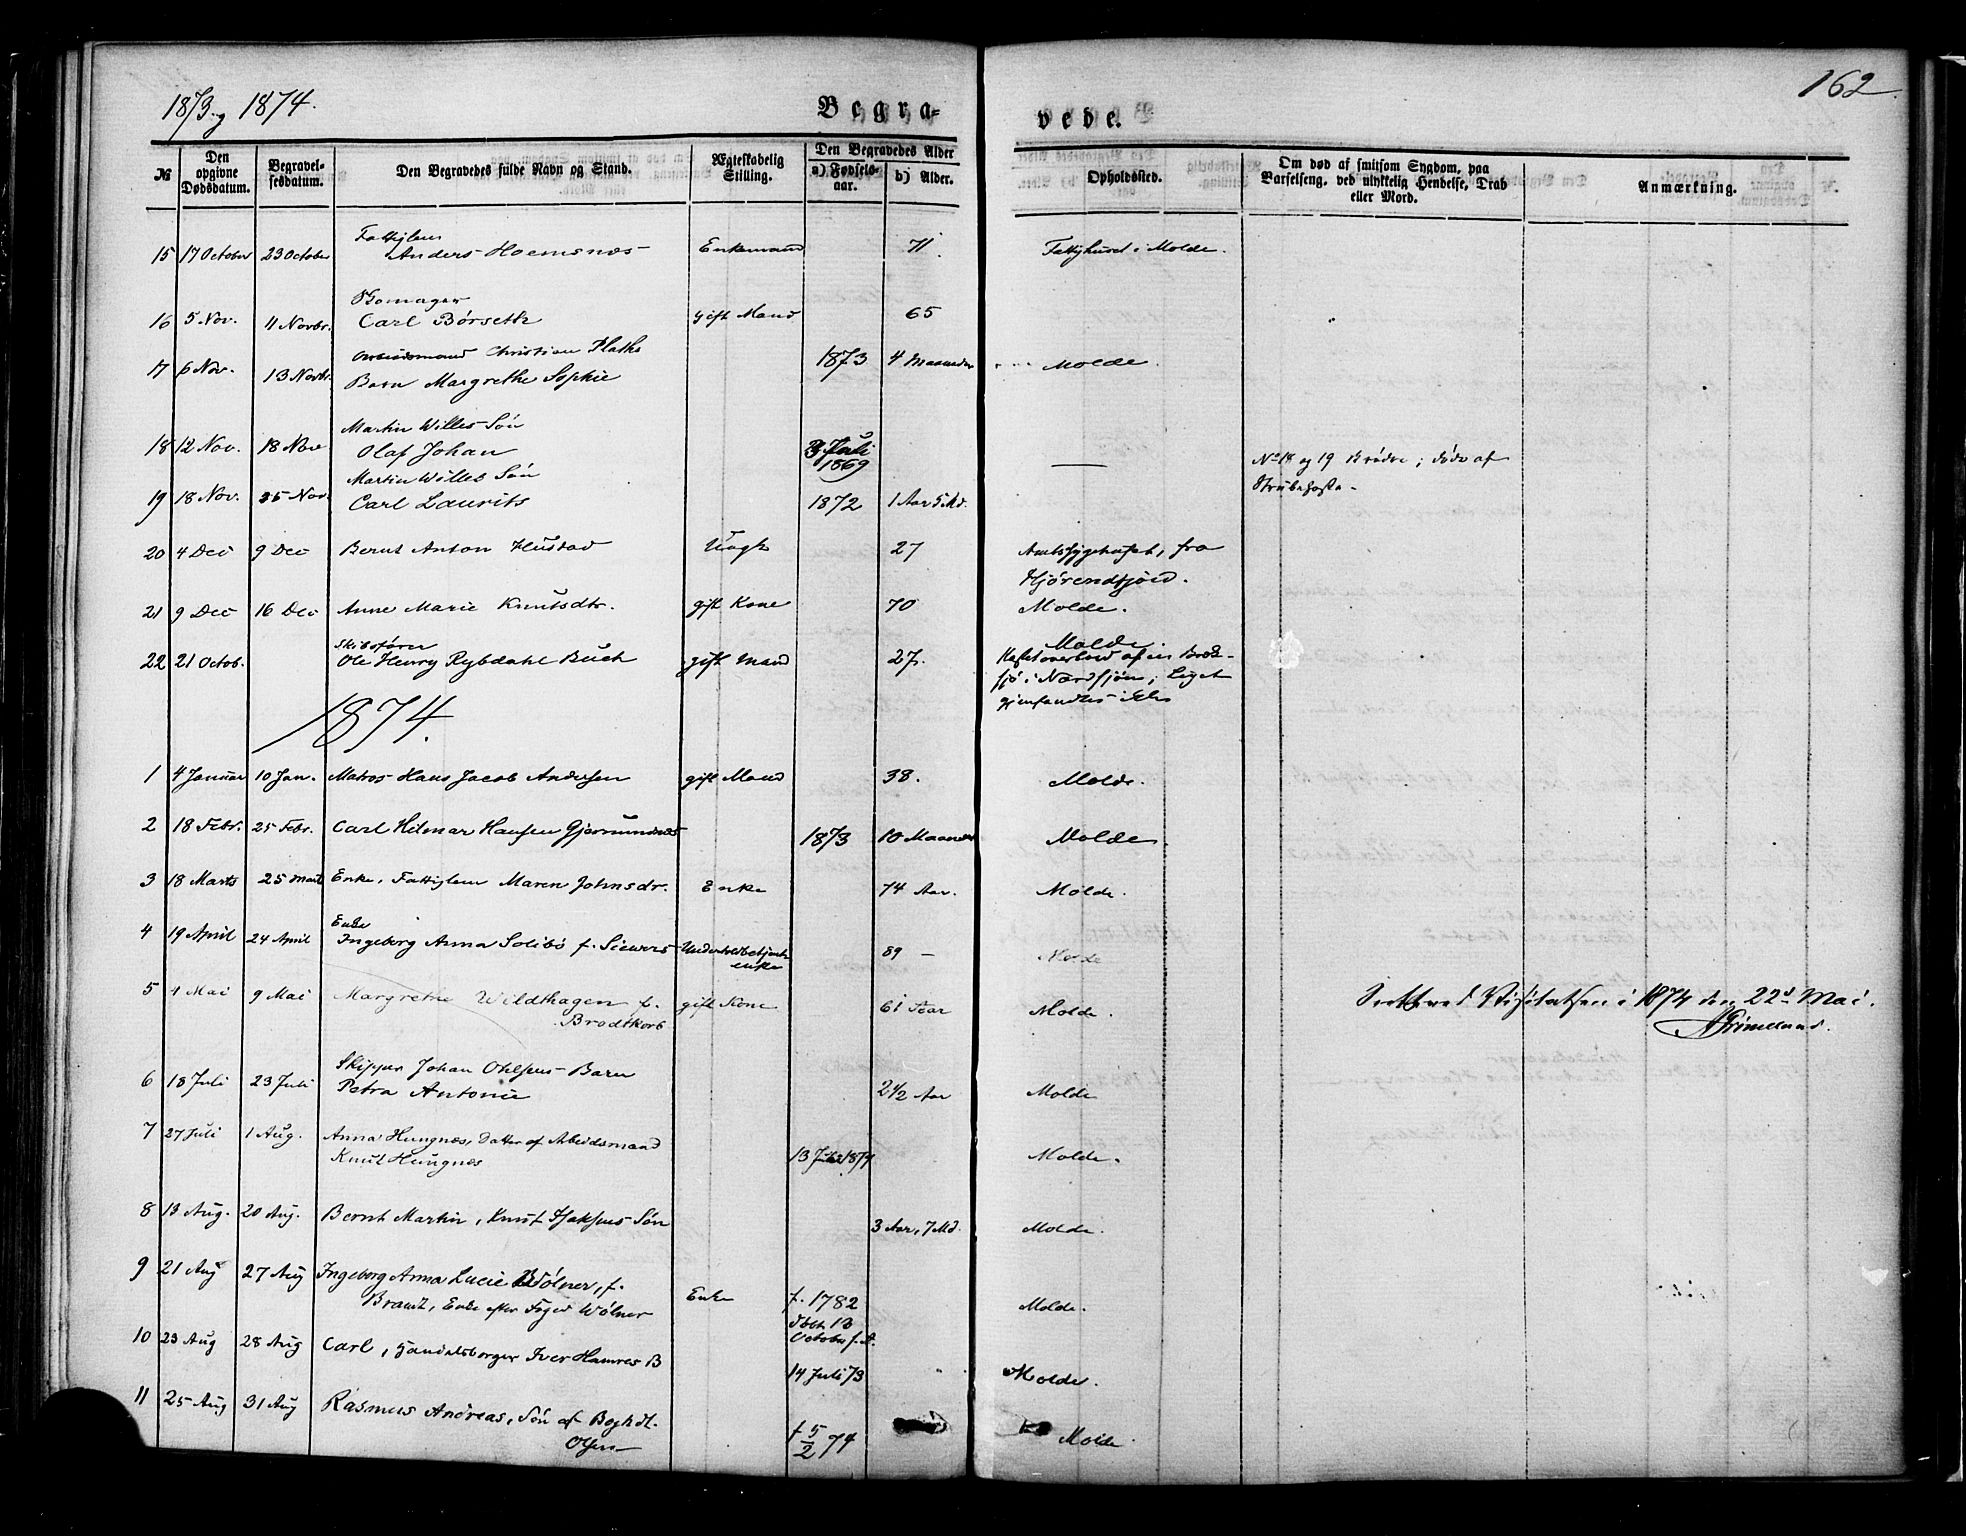 1873 og 1874.
162
Begravede.
№
Den opgivne Dødsdatum.
Begravelsesdatum.
Den Begravedes fulde Navn og Stand.
Ægteskabelig Stilling.
Den Begravedes Alder
a) Fødselsaar.
b) Alder.
Opholdssted.
Om død af smitsom Sygdom, paa Barselseng, ved ulykkelig Hendelse, Drab eller Mord.
Anmærkning.
Fattiglem
15 17 October 23 October Anders Hoemsnæs Enkemand 71 Fattighuset i Molde.
16 5 Nov. 11 Novbr. Carl Börseth gift Mand 65
Arbeidsmand Christian Plaths
17 6 Nov. 13 Novbr. Barn Margrethe Sophie 1873 4 Maaneder Molde.
Martin Willes Sön
18 12 Nov. 18 Nov Olaf Johan Juli 1869 —
Martin Willes Sön
19 18 Nov. 25 Nov. Carl Laurits 1872 1 Aar 5 Md.
No 18 og 19 Brödre; döde af
Strubehoste.
20 4 Dec 9 Dec Bernt Anton Hustad Ungk 27 Amtssygehuset, fra
Hjörendfjord.
21 9 Dec 16 Dec Anne Marie Knutsdtr. gift Kone 70 Molde.
Skibsförer
22 21 Octob. Ole Henry Rybdahl Buch gift Mand 27. Molde.
Kastet overbord af en Brod-
sjö i Nordsjöen; Liget
gjenfandtes ikke
1874.
1 4 Januar 10 Jan. Matros Hans Jacob Andersen gift Mand 38. Molde.
2 18 Febr. 25 Febr. Carl Hilmar Hansen Gjermundnæs 1873 10 Maaneder Molde.
3 18 Marts 25 Mart Enke, Fattiglem Maren Johnsdr. Enke 74 Aar. Molde.
Enke
4 19 April 24 April Ingeborg Anna Solibö f. Siewers Undertoldbetjents
enke 89 — Molde
5 4 Mai 9 Mai Margrethe Wildthagen f.
Brodtkorb gift Kone 61 Aar Molde.
Seet ved Visitatsen i 1874 den 22d Mai.
Grimelund.
Skipper Johan Ohlsens Barn
6 18 Juli 23 Juli Petra Antonie 2 1/2 Aar Molde
7 27 Juli 1 Aug. Anna Hungnes, Datter af Arbeidsmand
Knut Hungnes 13 1874 Molde.
8 13 Aug. 20 Aug. Bernt Martin, Knut Isaksens Sön 3 Aar, 7 Md. Molde.
9 21 Aug 27 Aug Ingeborg Anna Lucie Wölner, f.
Brandt, Enke efter Foged Wölner Enke f. 1782
döbt 13
October s. A. Molde.
10 23 Aug 28 Aug Carl, Handelsborger Iver Hamres B 14 Juli 73 Molde.
11 25 Aug 31 Aug Rasmus Andreas, Sön af
Olsen f 5/2 74 Molde.